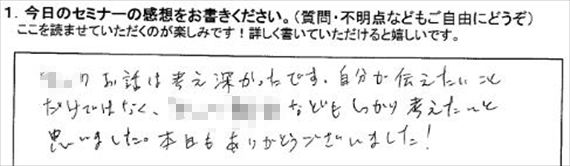 1. 今日のセミナーの感想をお書きください。(質問・不明点などもご自由にどうぞ)
ここを読ませていただくのが楽しみです!詳しく書いていただけると嬉しいです。
お話は考え深かったです。自分が伝えたいこと
だけではなく、などもしっかり考えたいと
思いました。本日もありがとうございました!